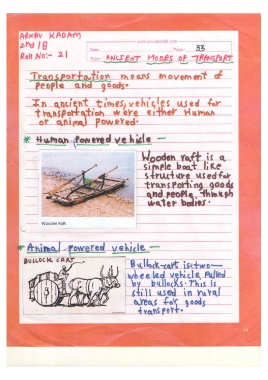 ARNAV KADAM
2nd / 8
Roll No:- 21
Date:
Page: 33
Topic: ANCIENT MODES OF TRANSPORT
Transportation means movement of
people and goods.
In ancient times, vehicles used for
transportation were either Human
or animal powered.
* Human powered vehicle —
Wooden raft is a
simple boat like
structure used for
transporting goods
and people through
water bodies.
Wooden Raft
* Animal powered vehicle —
BULLOCK CART
Bullock-cart is two-
wheeled vehicle pulled
by bullocks. This is
still used in rural
areas for goods
transport.